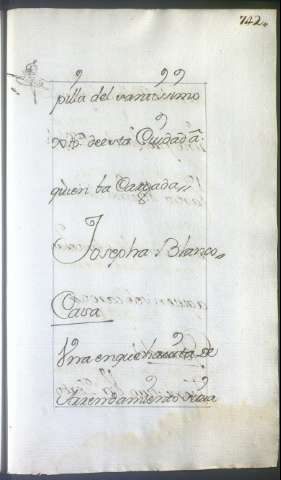 742.
pilla del santissimo
Xpto. de esta Ciudad â
quien ba Cargada"
Josepha Blanco"
Casa
Vna en que havita de
Arrendamiento